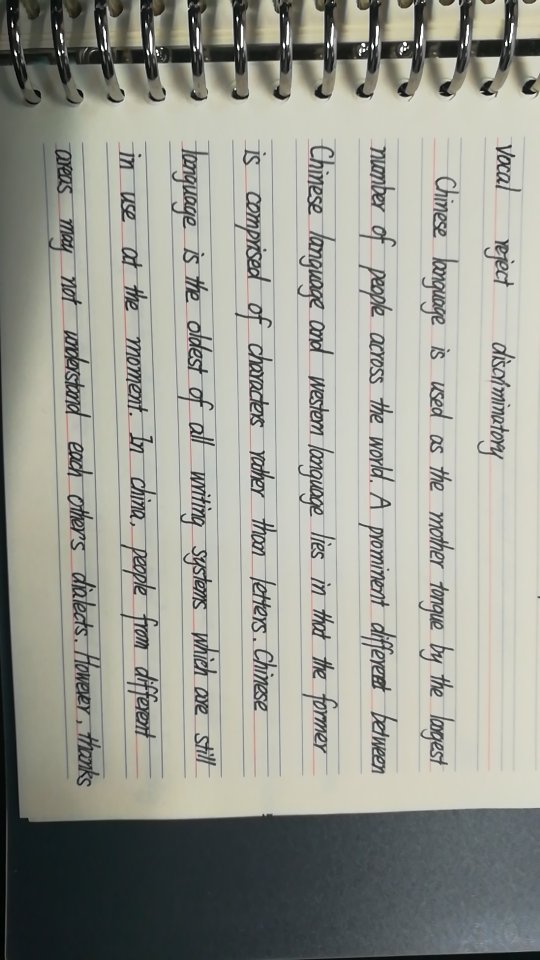 vocal reject discriminatory
Chinese language is used as the mother tongue by the largest
number of people across the world. A prominent different between
Chinese language and western language lies in that the former
is comprised of characters rather than letters. Chinese
language is the oldest of all writing systems which are still
in use at the moment. In China, people from different
areas may not understand each other's dialects. However, thanks